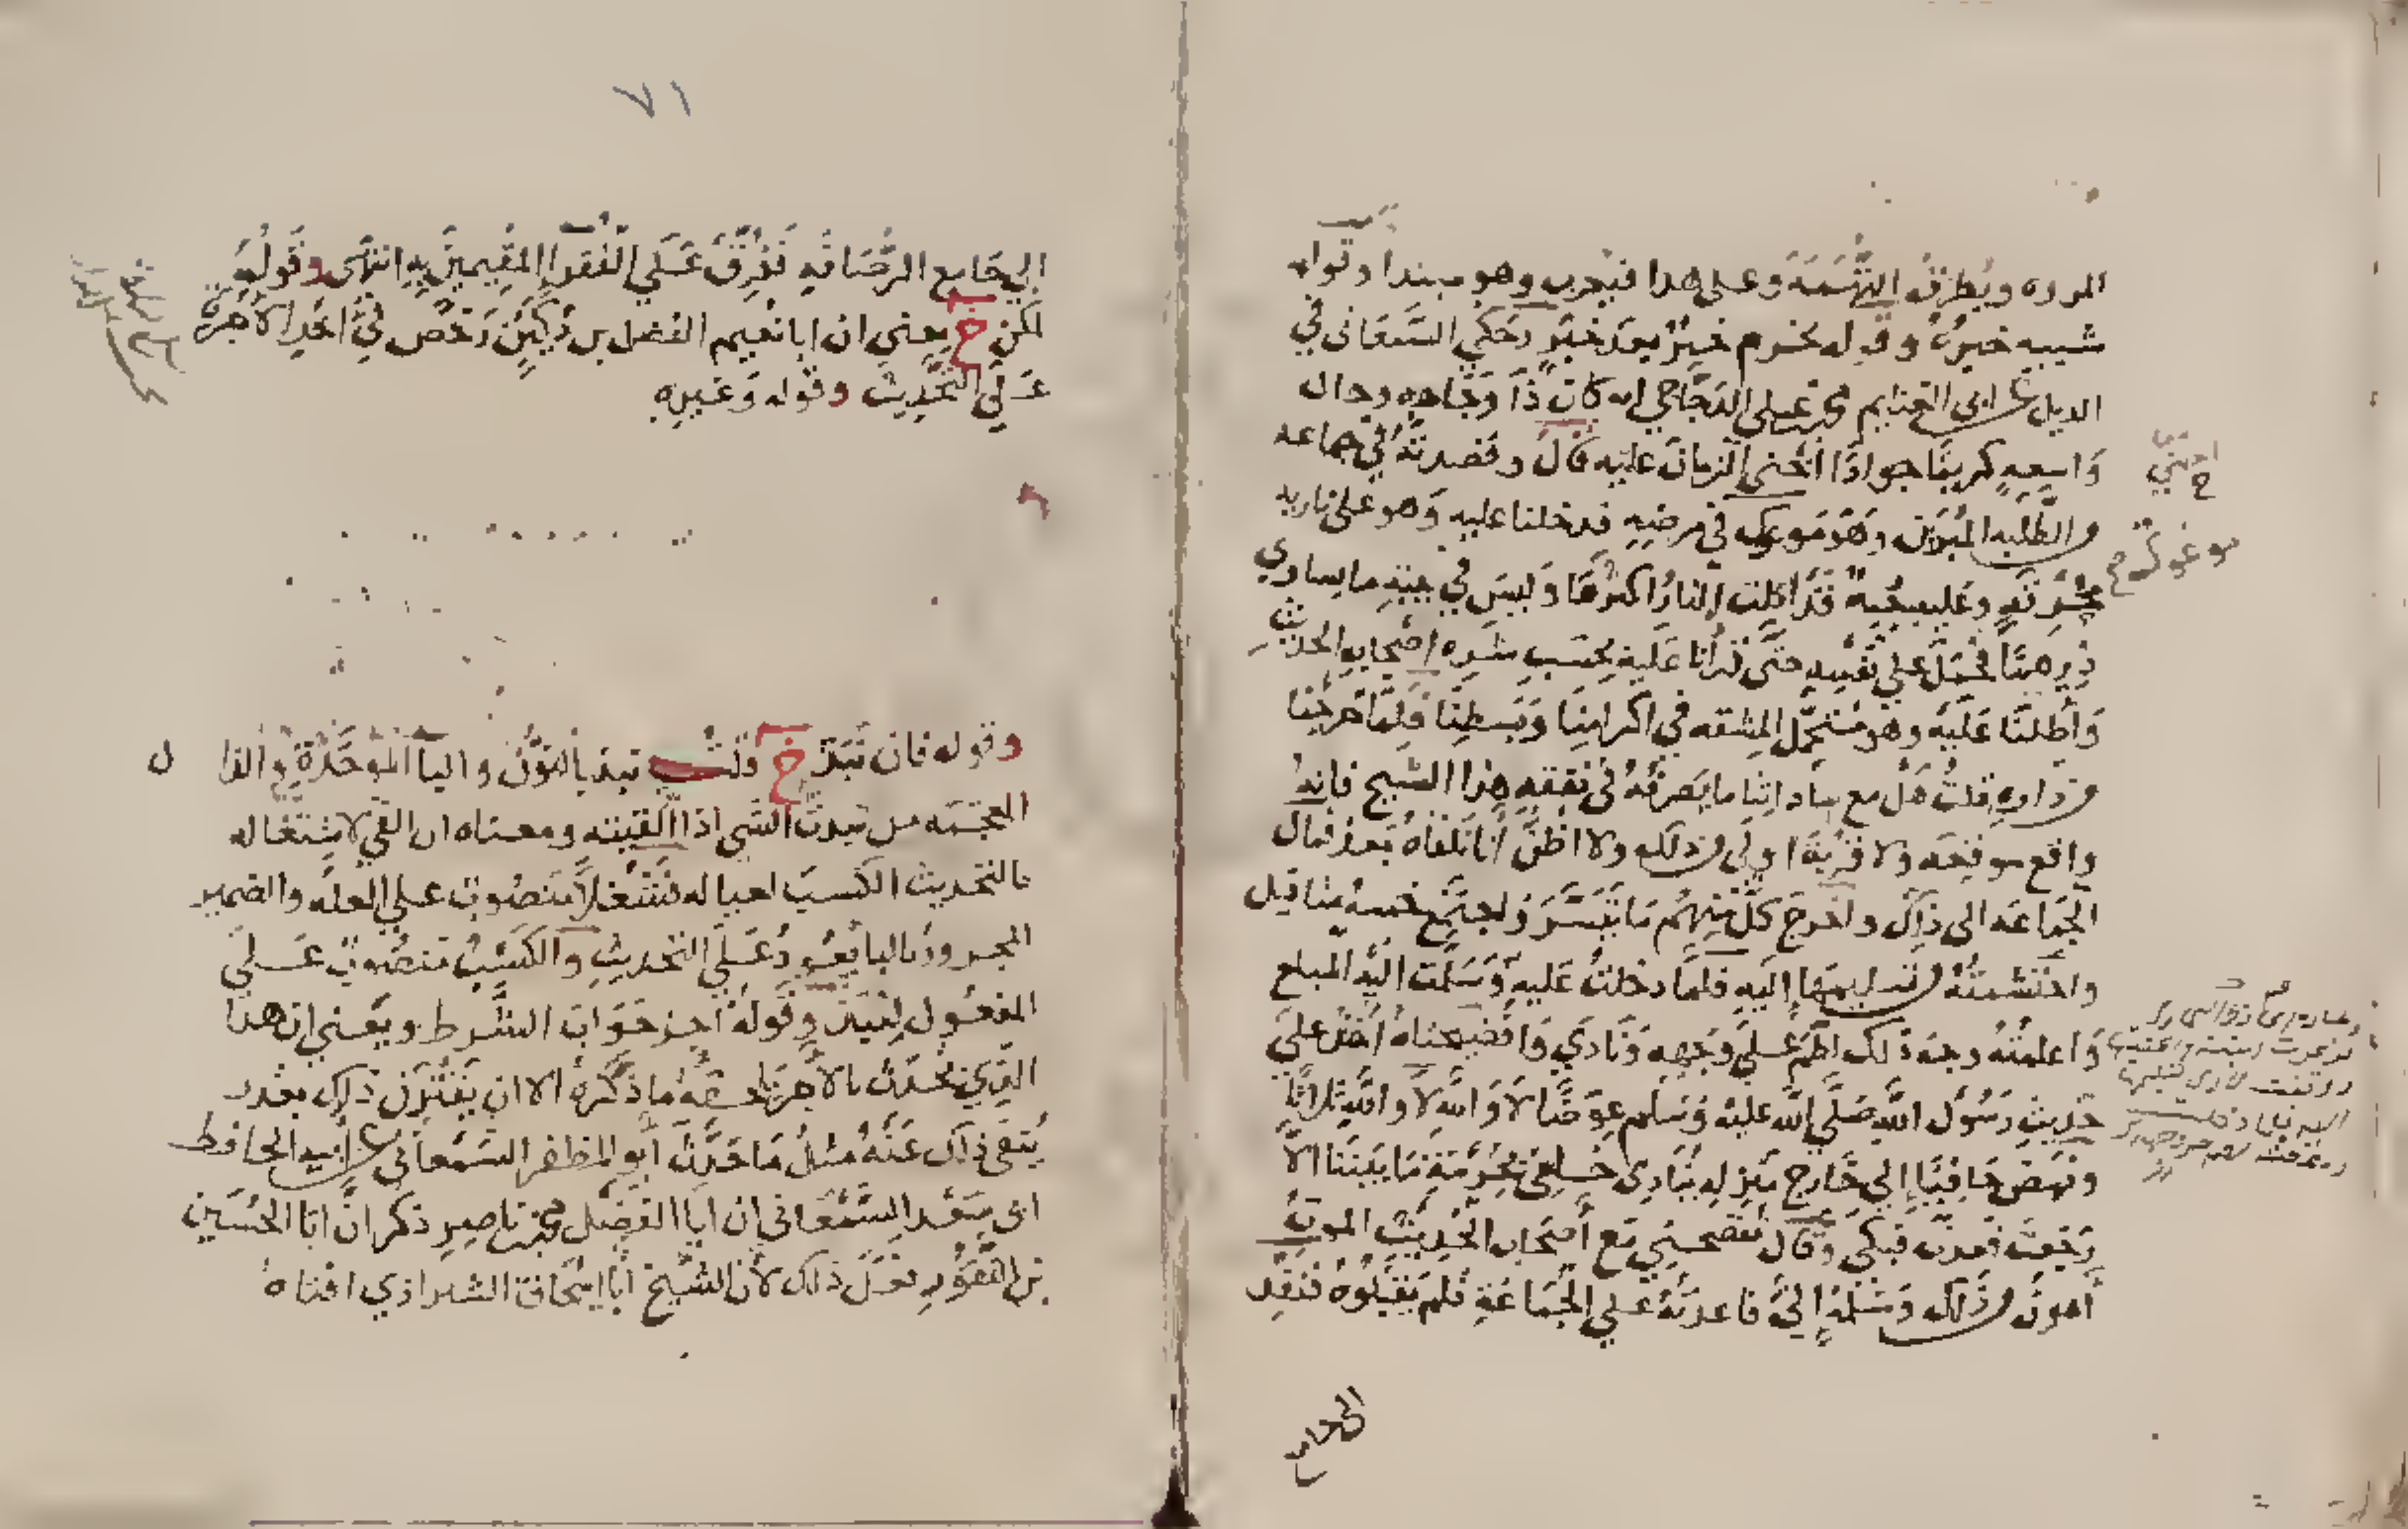 المروه ويُطرقه التهمه وعلى هذا فيجرب وهو مبتدا وقوله
شيبه خبره وقوله يخرم خبر بعد خبر وحكي السمعاني في
الذيل عن ابي الغنايم محمد بن علي الدجاجي انه كان ذا وجاهه وحال
واسعه كريما جوادا اخنى الزمان عليه قال وقصدته في جماعه
من الطلبه المثرين وهو موعوك في مرضه فدخلنا عليه وهو على باريه
وعليه جبة قد اكلت النار اكثرها وليس في بيته ما يساوي
درهما فحمل على نفسه حتى قرأنا عليه بحسب شره اصحاب الحديث
واطلنا عليه وهو متحمل المشقه في اكرامنا وبسطنا فلما خرجنا
من داره قلت هل مع سادتنا ما يصرفه في نفقه هذا الشيخ فانه
واقع موقعه ولا قربة اولى من ذلك ولا اظن انا نلقاه بعد فمال
الجماعه الى ذلك واخرج كل منهم ما تيسر واجتمع خمسه مثاقيل
واحتشمته من تسليمها اليه فلما دخلت عليه وسلمت اليه المبلغ
واعلمته وجه ذلك لطم على وجهه ونادى وافضيحتاه اخذ على
حديث رسول الله صلى الله عليه وسلم عوضا لا والله لا والله ثلاثا
ونهض حافيا إلي خارج منزله ينادي خلفي بحرمة ما بيننا الا
رجعت فعدت فبكى وقال تفضحني مع أصحاب الحديث الموت
أهون من ذلك وسلمه الي فاعدته على الجماعة فلم يقبلوه فنفذ
الى جامع
٧١
الي جامع الرصافه ففرق على الفقراء المقيمين به انتهى وقوله
لكن خ يعني ان ابا نعيم الفضل بن دكين رخص في اخذ الاجرة
على التحديث وقوله وغيره
وقوله فان نبذ خ قلت نبذ بالنون والبا الموحدة والذال
المعجمه من نبذت الشي اذا القيته ومعناه ان القي لاشتغاله
بالتحديث الكسب لعياله فشغلا منصوب على العله والضمير
المجرور بالبا يعود على التحديث والكسب منصوب على
المفعول لنبذ وقوله اجز جواب الشرط ويعني ان هذا
الذي يحدث بالأجرة لحقه ما ذكره الا ان يقترن ذلك بعذر
ينفي ذلك عنه مثل ما حدث أبو المظفر السمعاني عن أبيه الحافظ
ابى سعد السمعاني ان ابا الفضل محمد بن ناصر ذكر ان ابا الحسين
بن النقور فعل ذلك لأن الشيخ أبا إسحاق الشيرازي افتاه